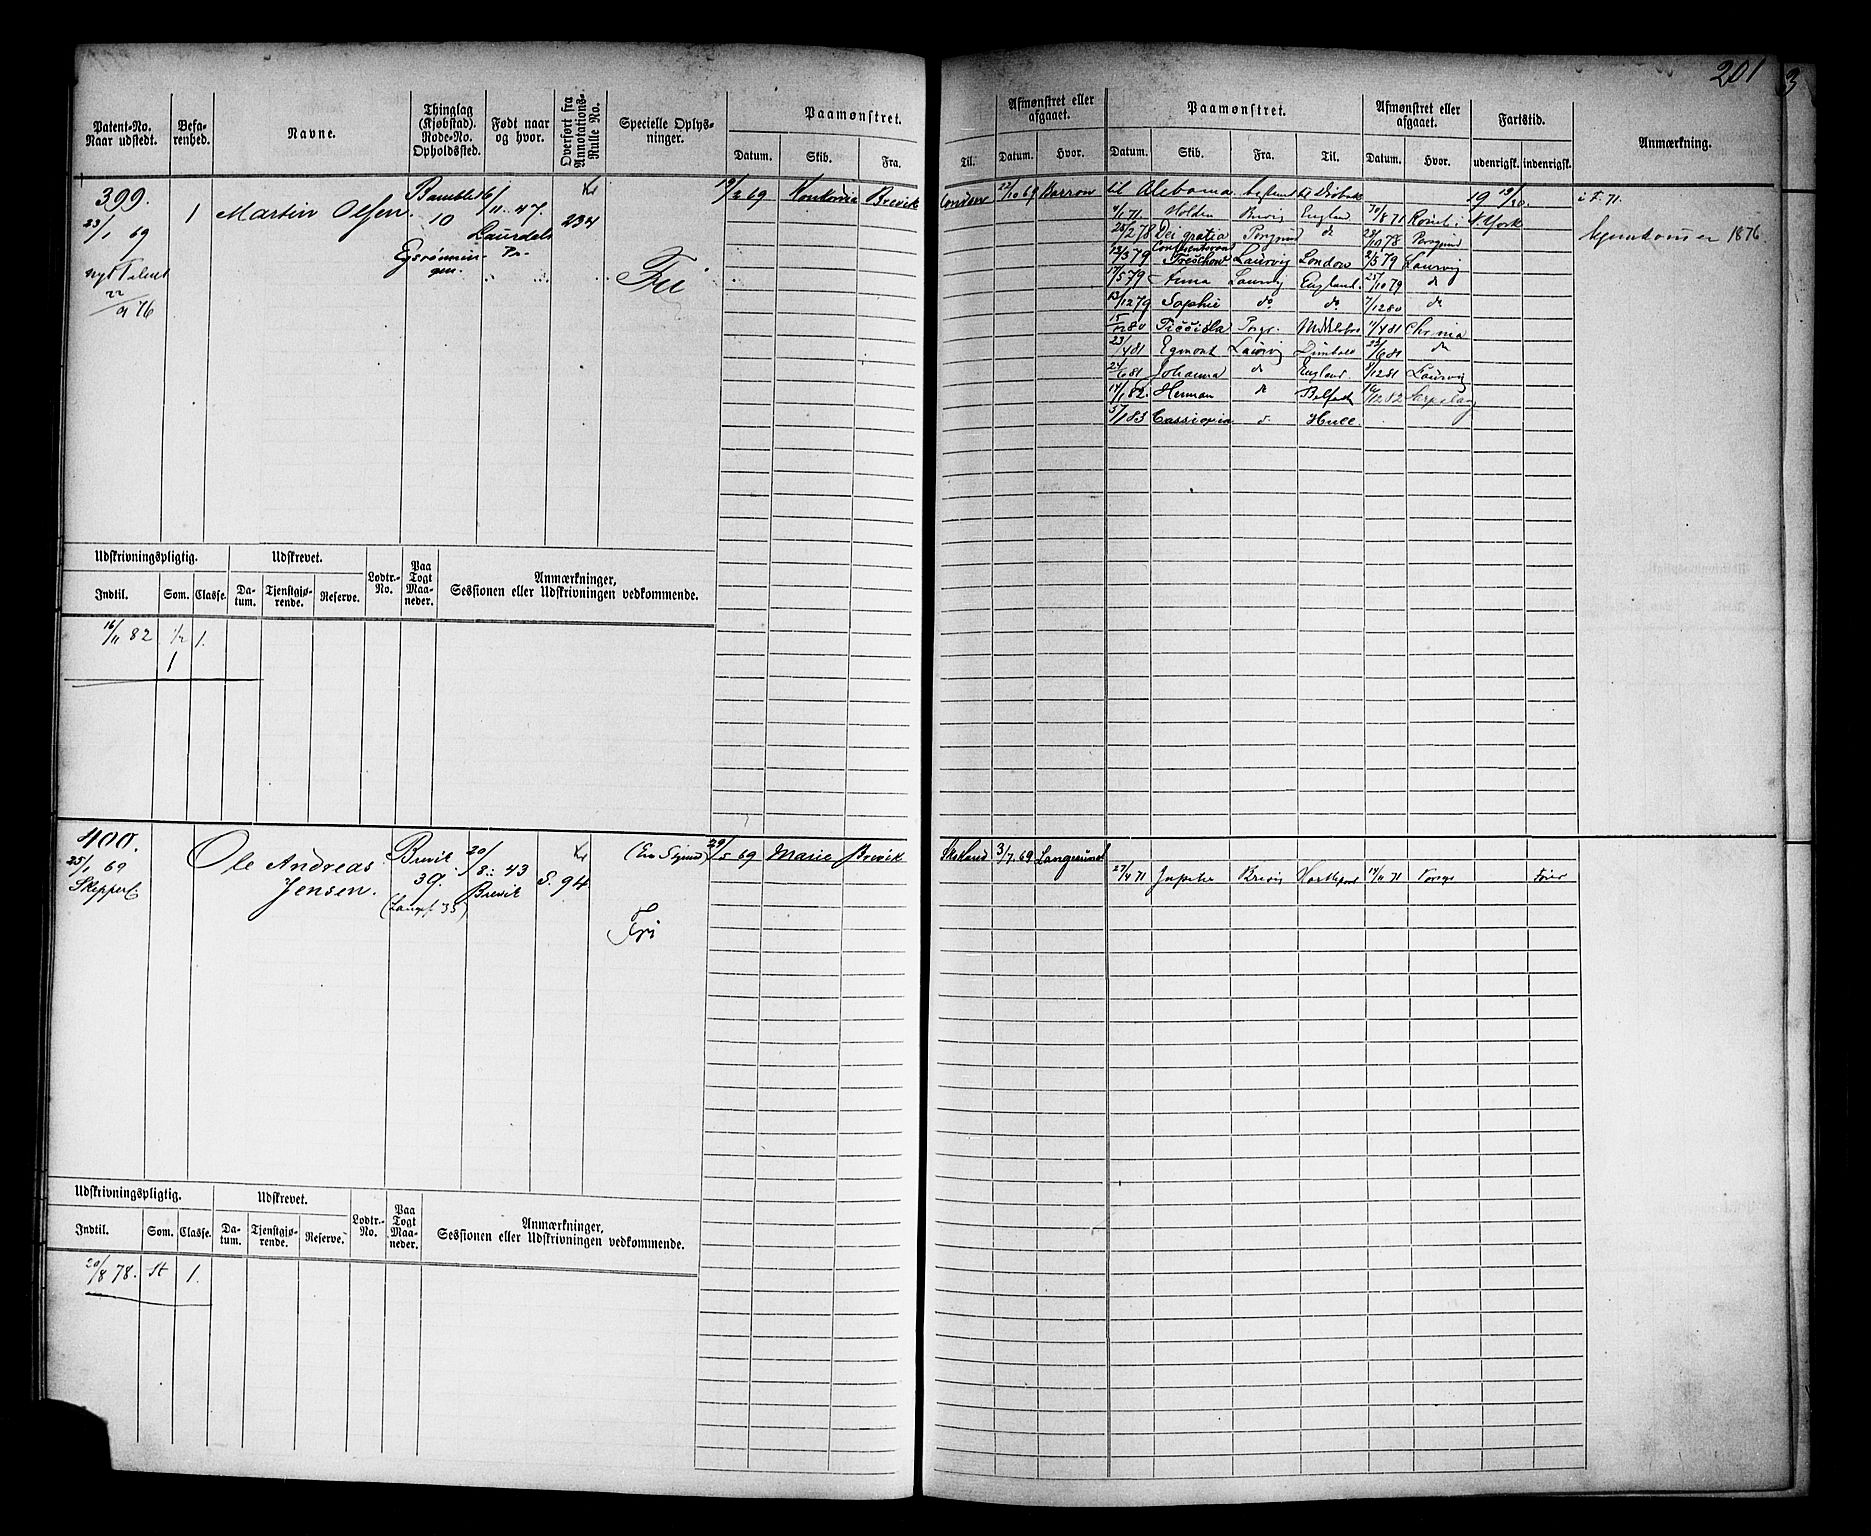 201
3
Patent-No. Naar udstedt.
Befa-renhed.
Navne.
Thinglag (Kjøbstad). Rode-No. Opholdssted.
Født naar og hvor.
Overført fra Annotations-Rulle No.
Specielle Oplys-ninger.
Paamønstret.
Datum. Skib. Fra.
Til.
Afmønstret eller afgaaet.
Datum. Hvor.
Paamønstret.
Datum. Skib. Fra. Til.
Afmønstret eller afgaaet.
Datum. Hvor.
Fartstid.
udenrigsk. indenrigsk.
Anmærkning.
399.
23/1 69
nyt Patent
22/9 76
1
Martin Olsen.
Bamble
10
6/11 47.
234
Fri
19/2 69 Brevik
London 22/10 69 Barrow
til Alabama
19 19/30
i F. 71.
4/1 71 Holden Brevig England 30/8 71 N. York
25/2 78 Dei gratia Porsgrund do 28/10 78 Porsgrund
Hjemkommer 1876.
13/3 79 Treschow Laurvig London 21/5 79 Laurvig
17/5 79 Anna Laurvig England. 25/10 79 do
13/12 79 Sophie do. do. 7/12 80 do
15/12 80 Porsgr. 11/4 81 Chrnia
23/4 81 Egmont Laurvig 22/6 81 do
24/6 81 Johanna do England. 9/12 81 Laurvig
14/1 82. Herman do Belfast 16/12 82
5/1 83 Cassiopeia d. Hull.
Udskrivningspligtig. Udskrevet. Lodtr.-No. Paa Togt Maa-neder. Anmærkninger, Sessionen eller Udskrivningen vedkommende.
Indtil. Som. Classe. Da-tum. Tjenstgjø-rende. Reserve.
16/11 82 1/2 1.
1
400.
25/1 69
Ole Andreas
Jensen.
Brevik
39.
(Langes. 35)
20/8 43
Brevik
S. 94
Fri
29/5 69 Marie Brevik
3/7 69 Langesund
27/4 71 Brevig 14/11 71
Udskrivningspligtig. Udskrevet. Lodtr.-No. Paa Togt Maa-neder. Anmærkninger, Sessionen eller Udskrivningen vedkommende.
Indtil. Som. Classe. Da-tum. Tjenstgjø-rende. Reserve.
20/8 78. St 1.